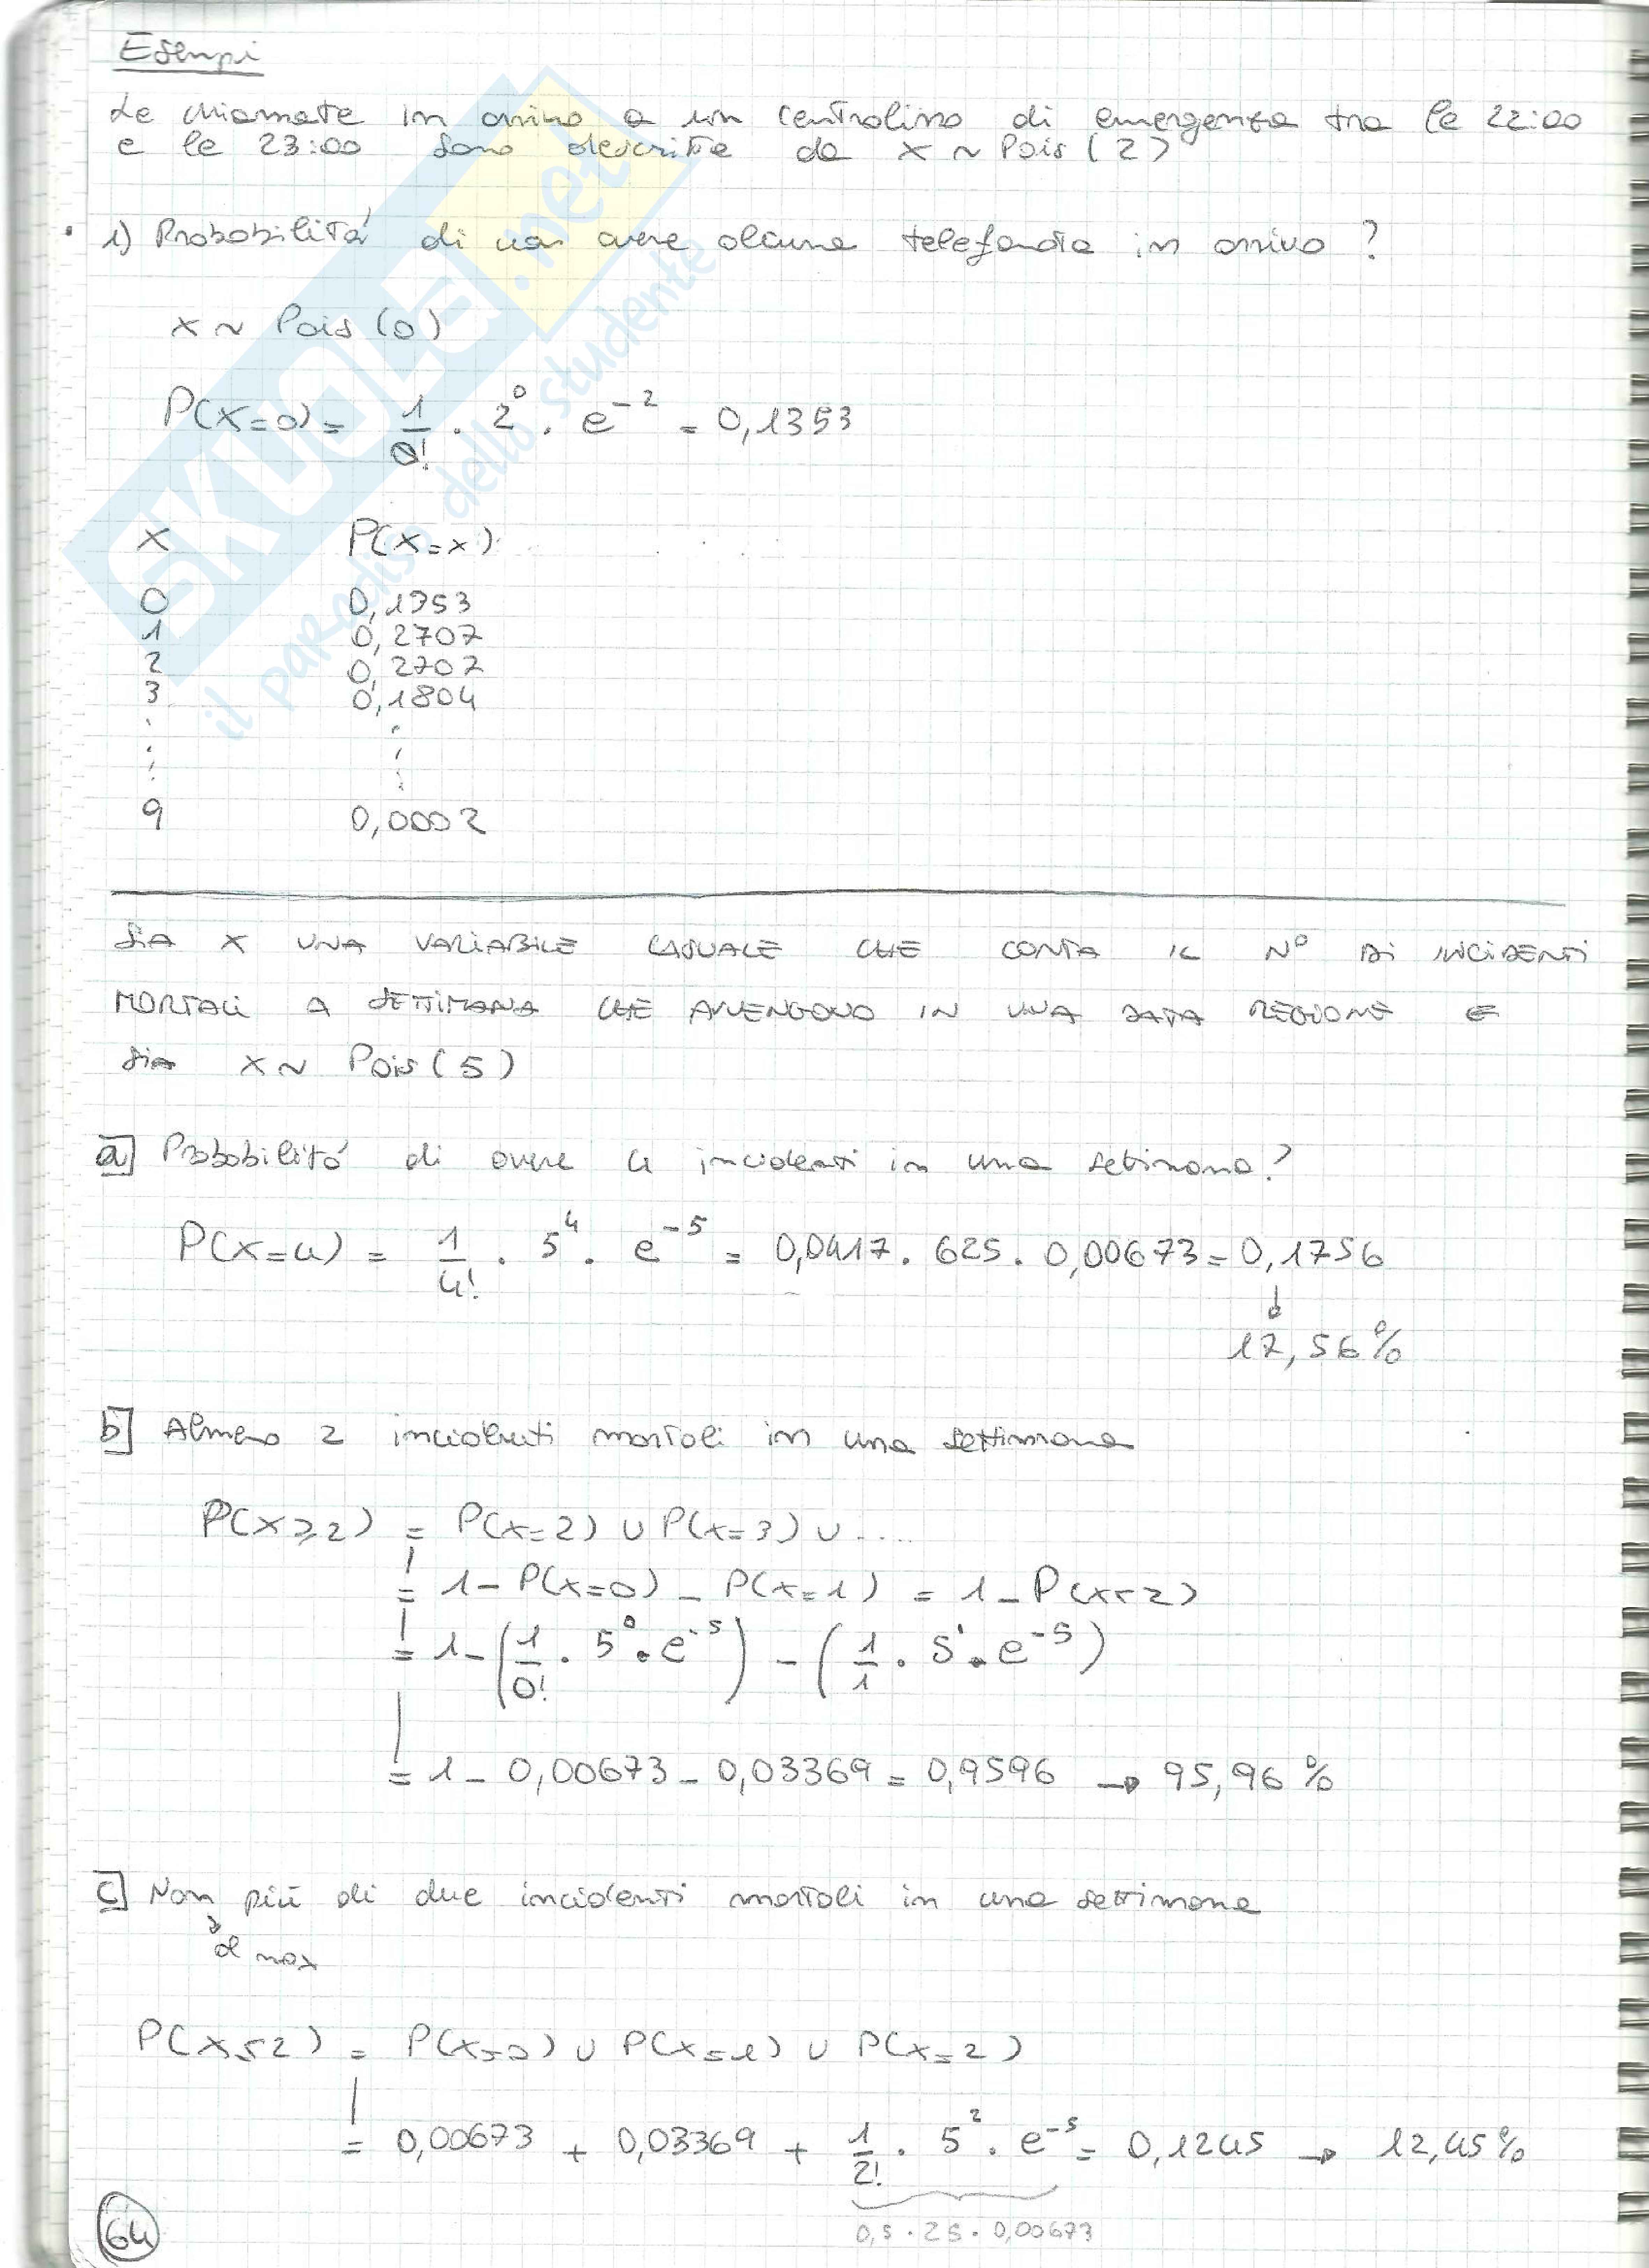 Esempi
Le chiamate in arrivo a un centralino di emergenza tra le 22:00
e le 23:00 sono descritte da x ~ Pois (2)
1) Probabilitá di non avere alcuna telefonata in arrivo ?
x ~ Pois (0)
P(x=0) = 1/0! · 2^0 · e^-2 = 0,1353
x P(x=x)
0 0,1353
1 0,2707
2 0,2707
3 0,1804
9 0,0002
SIA X UNA VARIABILE CASUALE CHE CONTA IL N° DI INCIDENTI
MORTALI A SETTIMANA CHE AVVENGONO IN UNA DATA REGIONE E
SIA X ~ Pois (5)
a] Probabilitá di avere 4 incidenti in una settimana?
P(x=4) = 1/4! · 5^4 · e^-5 = 0,0417 · 625 · 0,00673 = 0,1756
17,56%
b] Almeno 2 incidenti mortali in una settimana
P(x≥2) = P(x=2) ∪ P(x=3) ∪ ....
= 1 - P(x=0) - P(x=1) = 1 - P(x<2)
= 1 - (1/0! · 5^0 · e^-5) - (1/1 · 5^1 · e^-5)
= 1 - 0,00673 - 0,03369 = 0,9596 → 95,96 %
c] Non piú di due incidenti mortali in una settimana
al max
P(x≤2) = P(x=0) ∪ P(x=1) ∪ P(x=2)
= 0,00673 + 0,03369 + 1/2! · 5^2 · e^-5 = 0,1245 → 12,45%
0,5 · 25 · 0,00673
64
SKUOLA.net
il paradiso dello studente